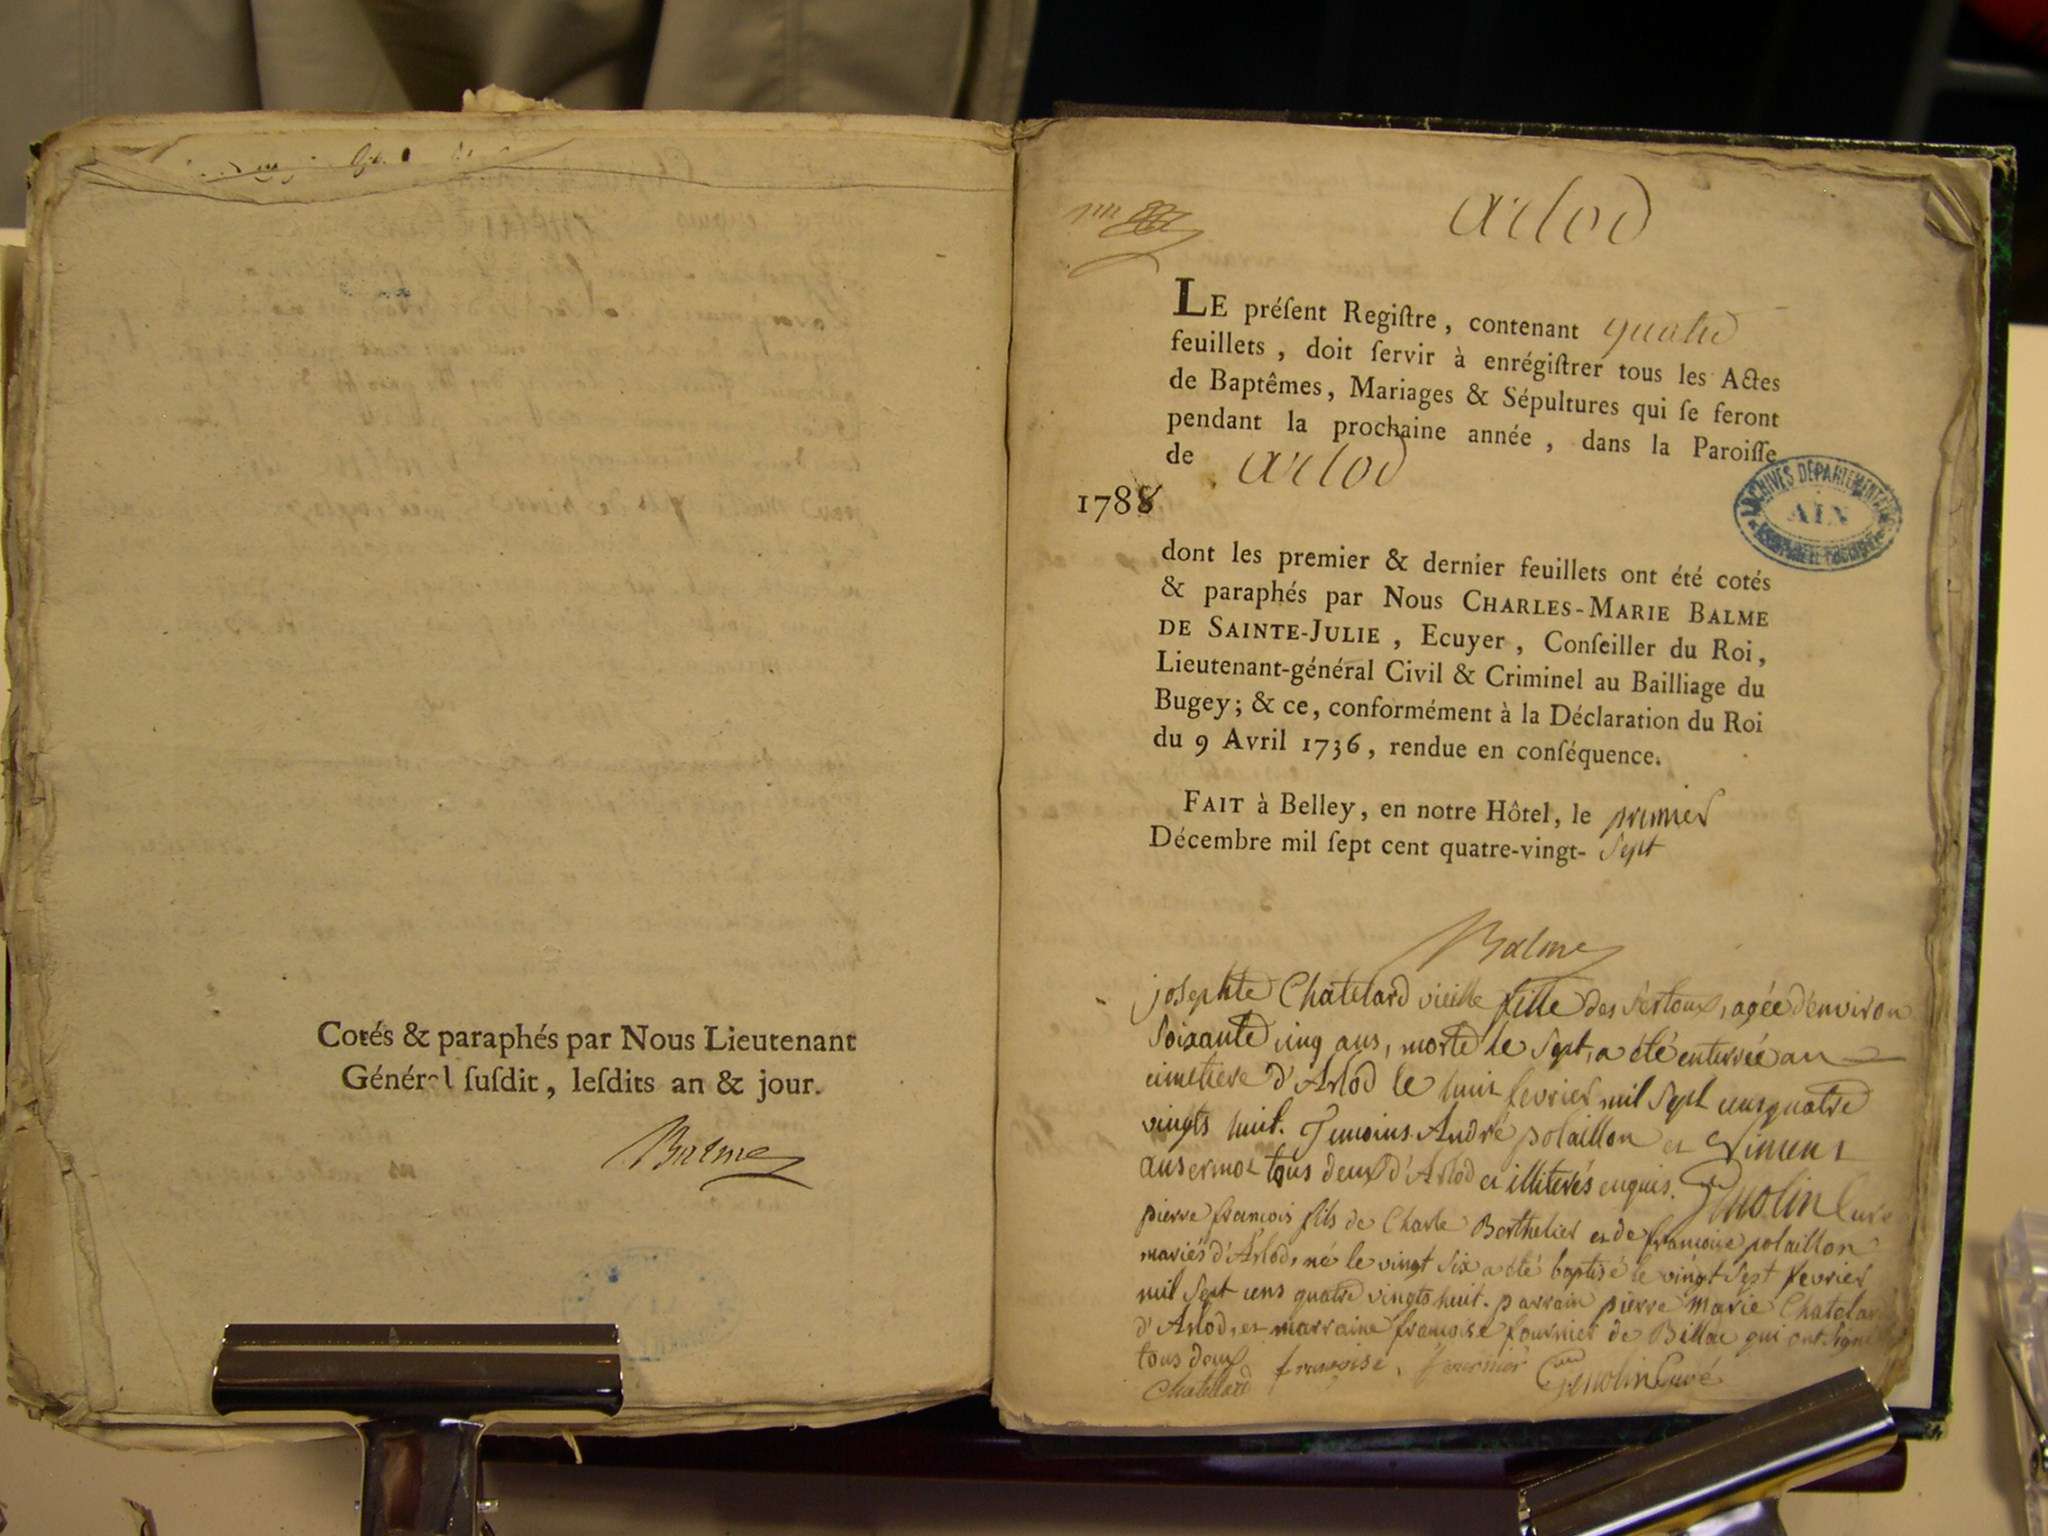 Cotés & paraphés par Nous Lieutenant
Général ſuſdit, leſdits an & jour.
Balme
arlod
LE préſent Regiſtre, contenant quatre
feuillets, doit ſervir à enrégiſtrer tous les Actes
de Baptêmes, Mariages & Sépultures qui ſe feront
pendant la prochaine année, dans la Paroiſſe
de arlod
1788
ARCHIVES DÉPARTEMENTALES
AIN
dont les premier & dernier feuillets ont été cotés
& paraphés par Nous CHARLES-MARIE BALME
DE SAINTE-JULIE, Ecuyer, Conſeiller du Roi,
Lieutenant-général Civil & Criminel au Bailliage du
Bugey; & ce, conformément à la Déclaration du Roi
du 9 Avril 1736, rendue en conſéquence.
FAIT à Belley, en notre Hôtel, le premier
Décembre mil ſept cent quatre-vingt- sept
Balme
josephte Chatelard vieille fille des , agée d'environ
soixante cinq ans, morte le sept, a été enterrée au
cimetiere d'Arlod le huit fevrier mil sept cens quatre
vingts huit. Temoins André polaillon et Vincent
ansermoz tous deux d'Arlod et illiterés enquis. Genolin Curé
pierre françois fils de Charle Berthelier et de françoise polaillon
mariés d'Arlod, né le vingt six a été baptisé le vingt sept fevrier
mil sept cens quatre vingts huit. parrain pierre marie Chatelard
d'Arlod, et marraine françoise fournier de Billac qui ont signé
tous deux françoise fournier Genolin Curé
Chatelard